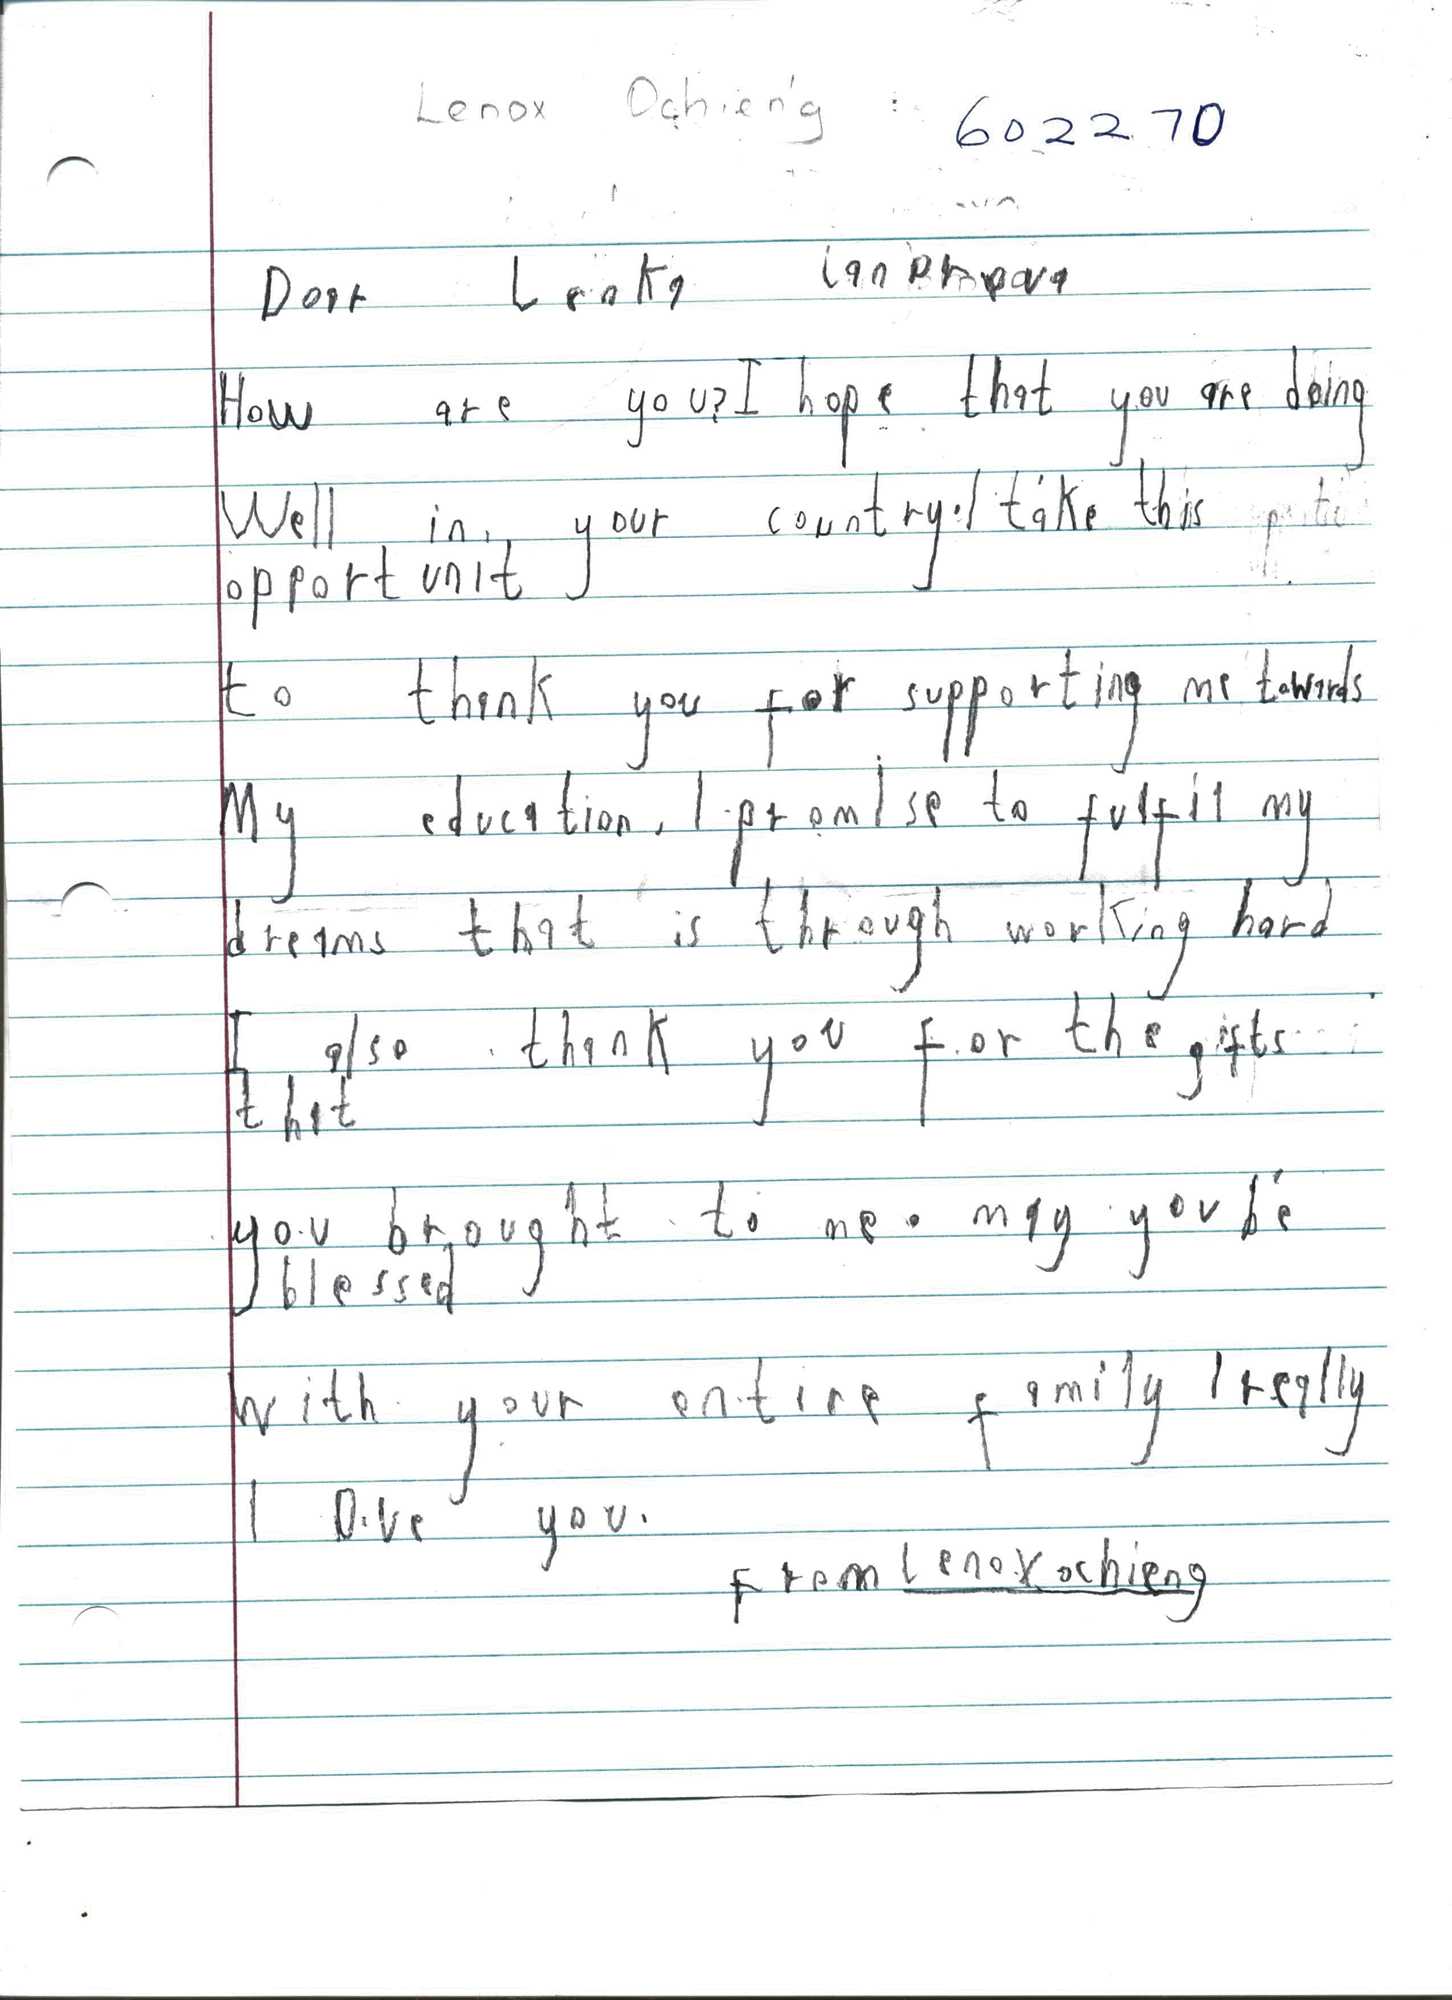 Lenox Ochieng : 602270
Dear Lenka
How are you? I hope that you are doing
Well in your country. I take this
opportunit
to thank you for supporting me towards
My education. I promise to fulfil my
dreams that is through working hard
I also thank you for the gifts
that
you brought to me. may you be
blessed
with your entire family I really
l Ove you.
From Lenox ochieng